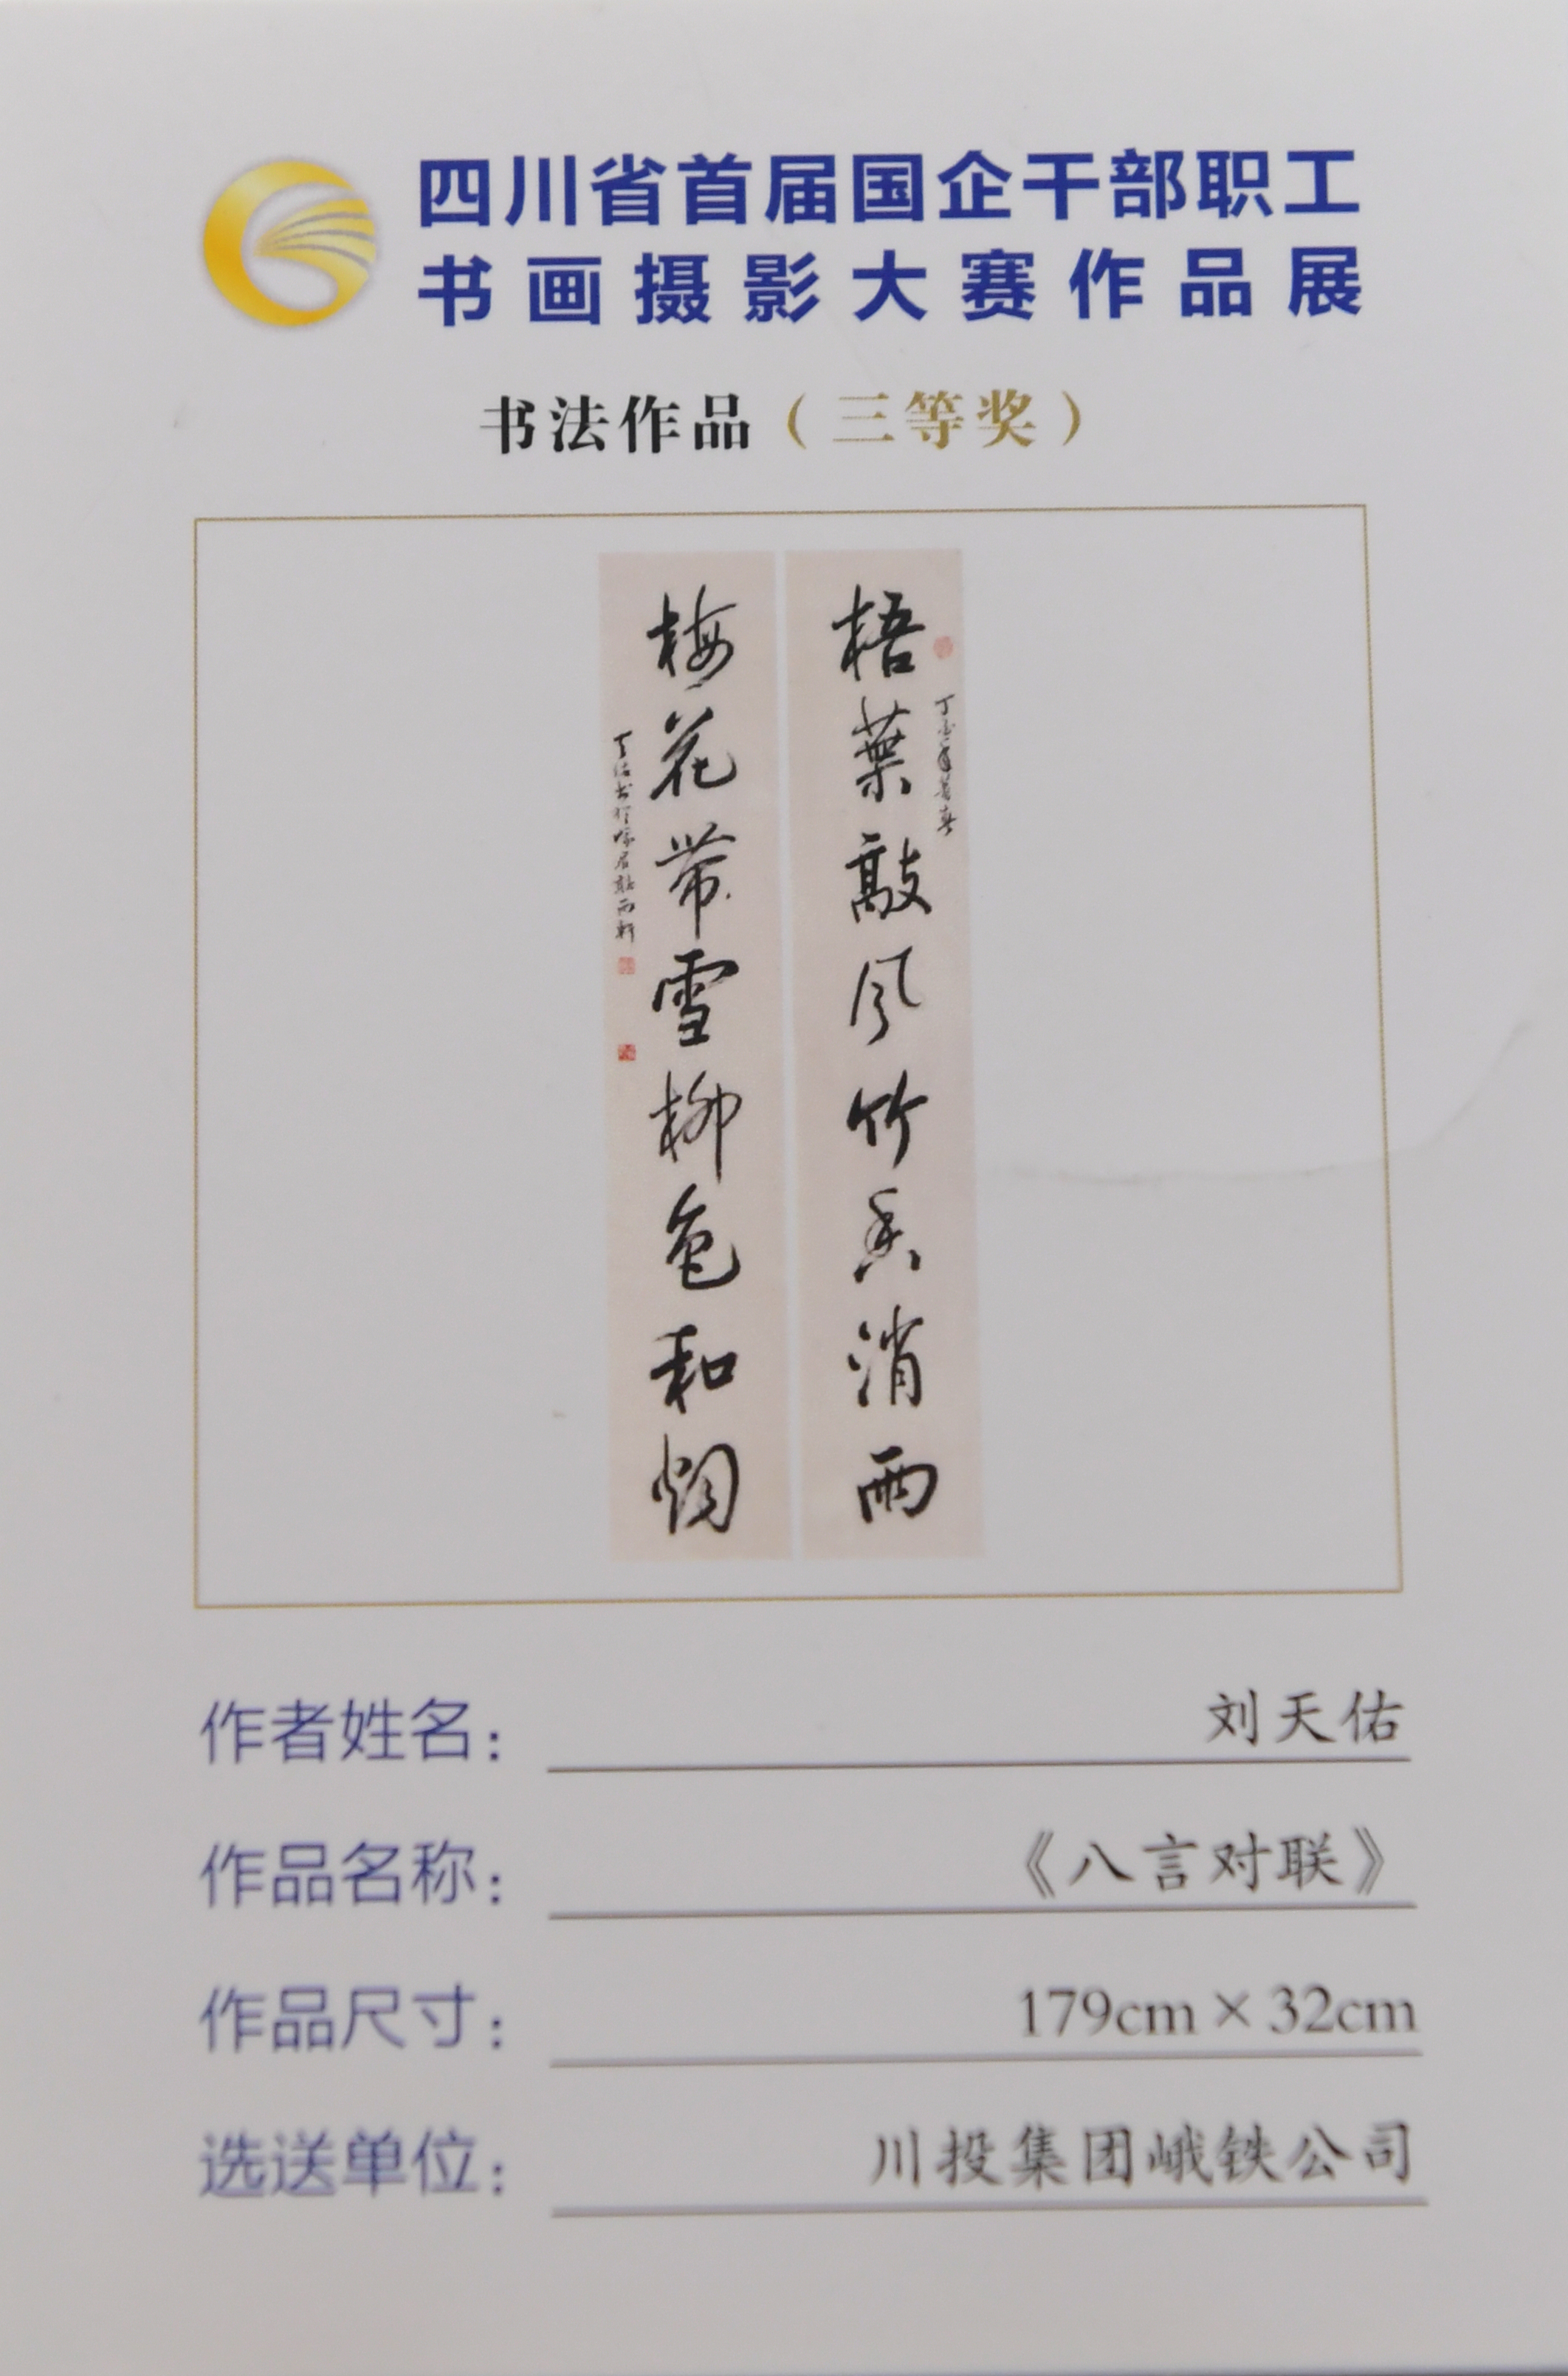 四川省首届国企干部职工
书画摄影大赛作品展
书法作品（三等奖）
丁酉年暮春
梧葉敲风竹香消雨
梅花带雪柳色和烟
天佑书於峨眉聽雨軒
作者姓名： 刘天佑
作品名称： 《八言对联》
作品尺寸： 179cm×32cm
选送单位： 川投集团峨铁公司